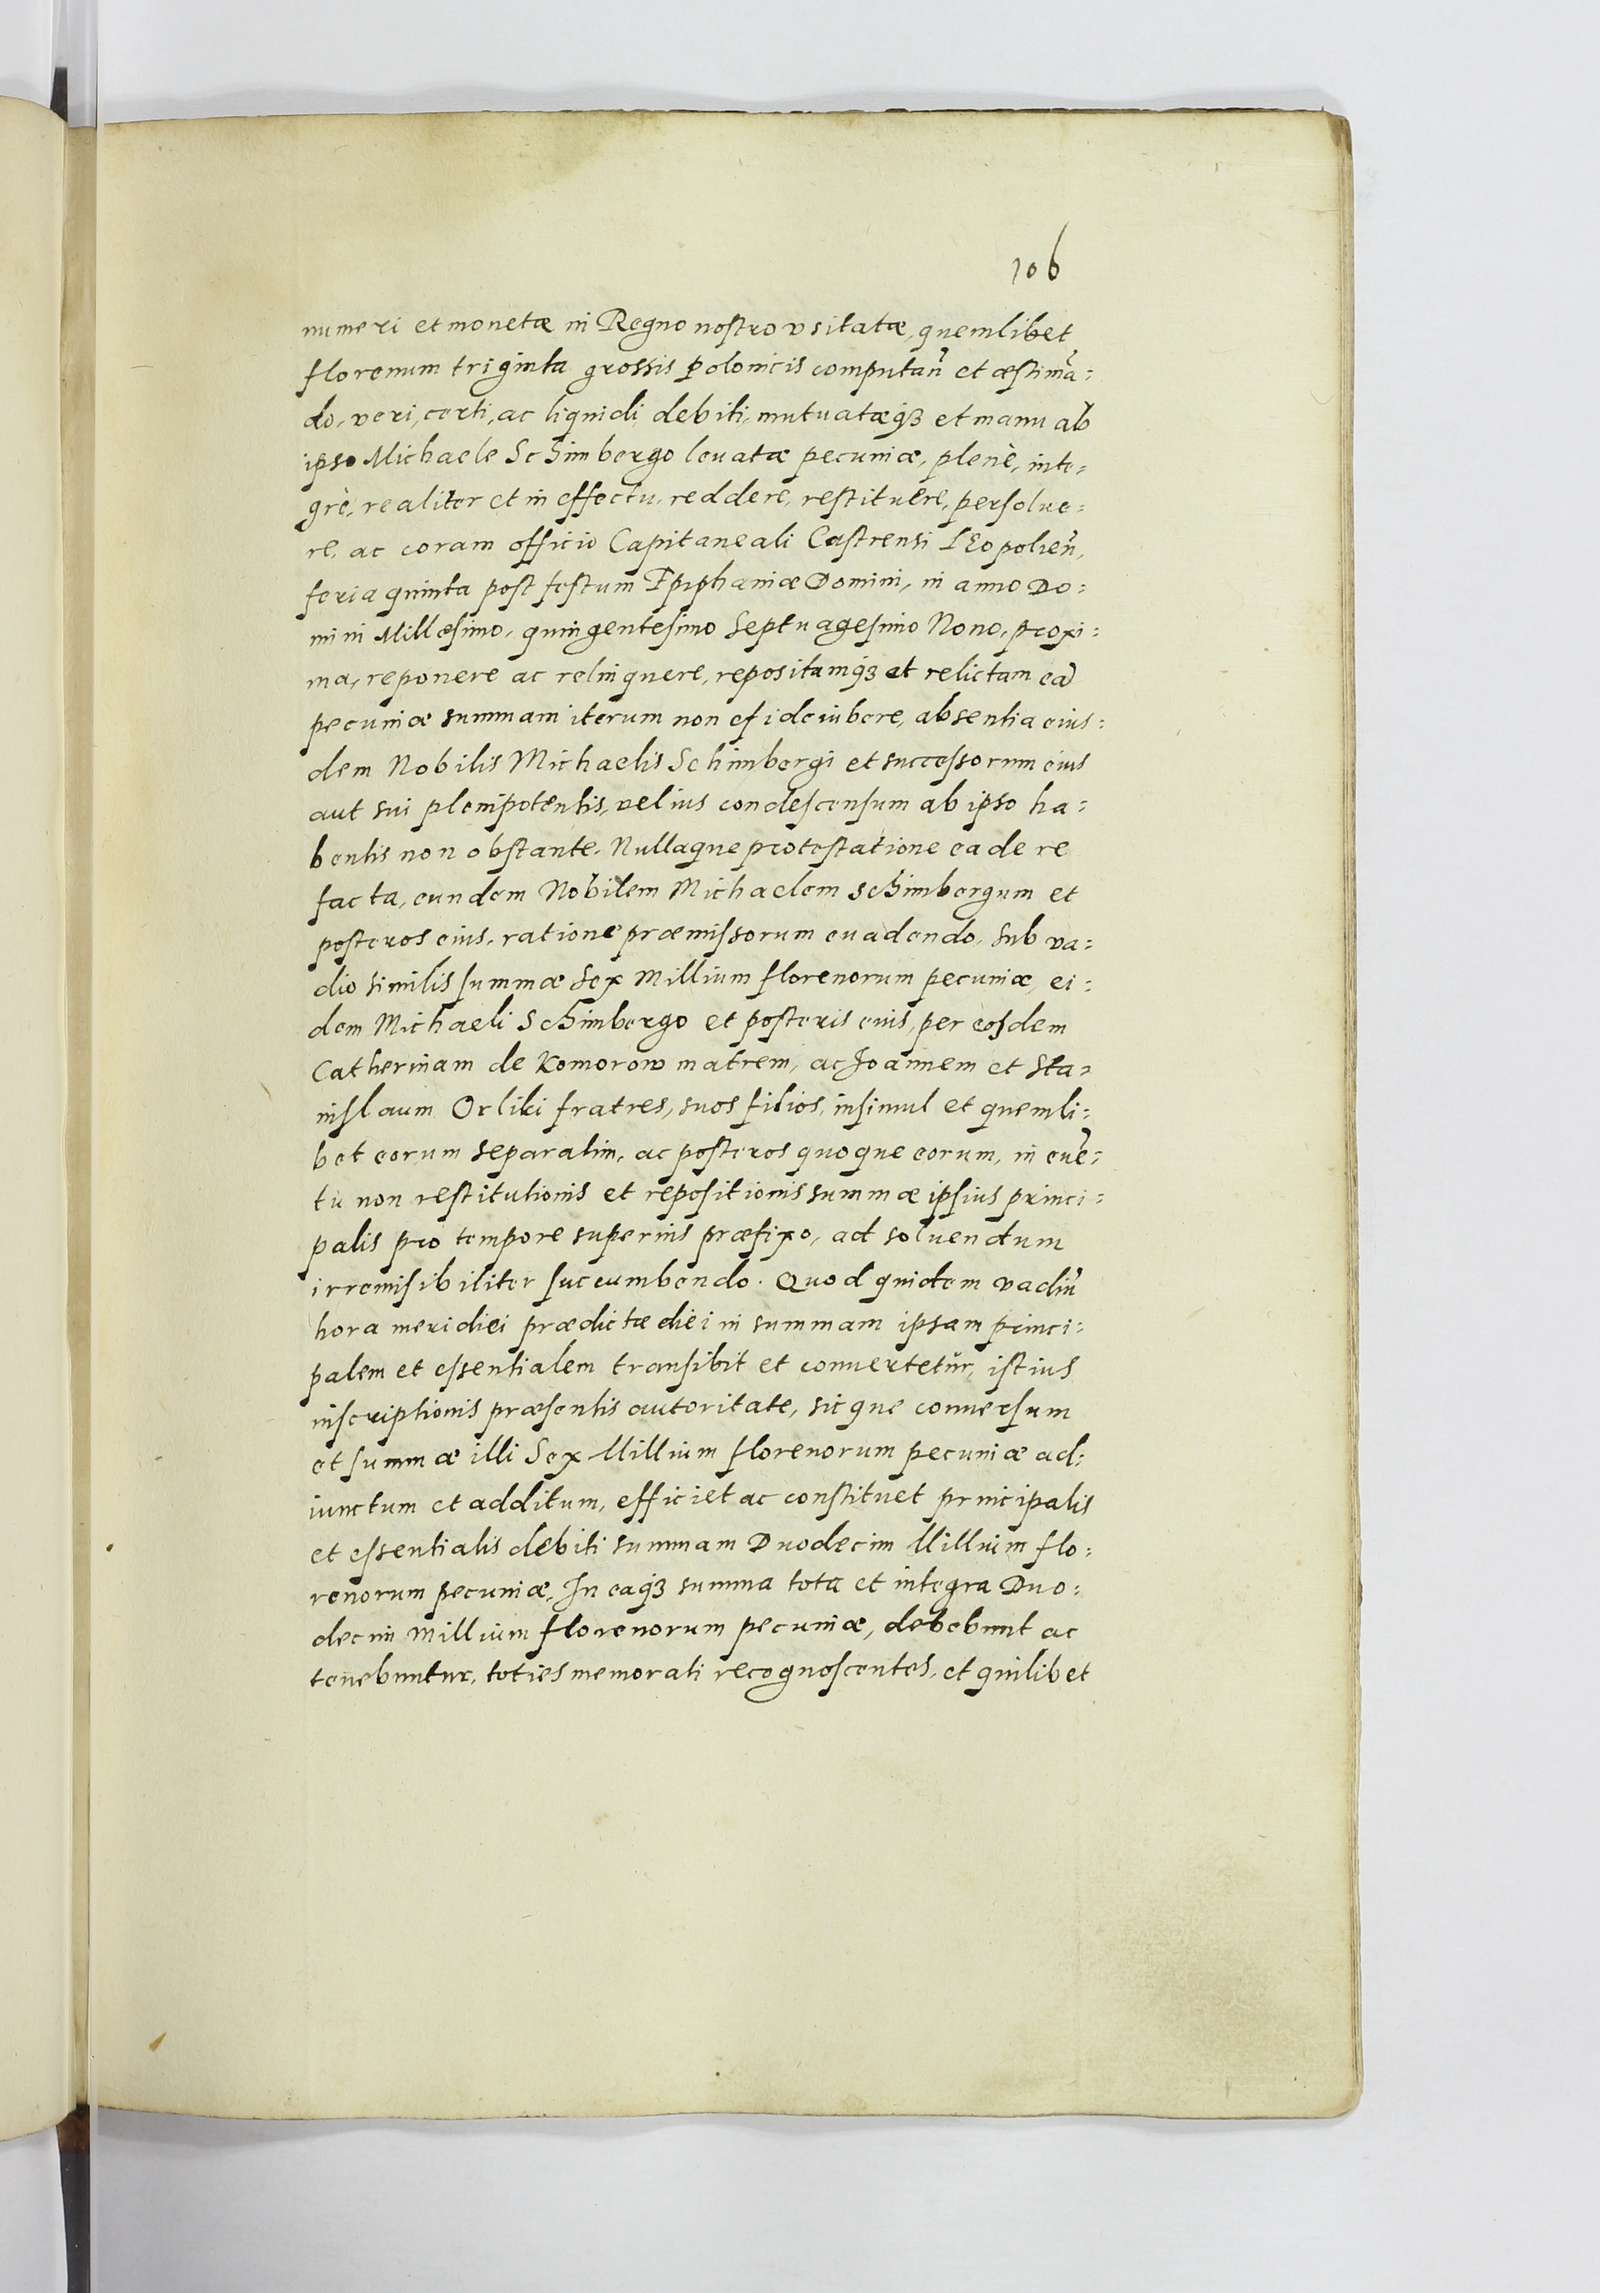 106
numeri et monetæ in Regno nostro vsitatæ, quemlibet
florenum triginta grossis Polonicis computañ et æstimã=
do, veri, certi, ac liquidi debiti, mutuatæqȝ et manu ab
ipso Michaele Schimbergo leuatæ pecuniæ, plenè, inte=
grè, realiter et in effectu, reddere, restituere, persolue=
re, ac coram officio Capitaneali Castrensi LEopolieñ,
feria quinta post festum Epiphaniæ Domini, in anno Do=
mini Millesimo, quingentesimo Septuagesimo Nono, proxi=
ma, reponere ac relinquere, repositamqȝ et relictam eã
pecuniæ summam iterum non efideiubere, absentia eius=
dem Nobilis Michaelis Schimbergi et successorum eius
aut sui plenipotentis, vel ius condescensum ab ipso ha=
bentis non obstante. Nullaque protestatione ea de re
facta, eundem Nobilem Michaelem Schimbergum et
posteros eius, ratione præmissorum euadendo, sub va=
dio similis summæ Sex Millium florenorum pecuniæ, ei=
dem Michaeli Schimbergo et posteris eius, per eosdem
Catherinam de Komorow matrem, ac Joannem et Sta=
nislaum Orliki fratres, suos filios, insimul et quemli=
bet eorum separatim, ac posteros quoque eorum, in euẽ=
tu non restitutionis et repositionis summæ ipsius princi=
palis pro tempore superius præfixo, ad soluendum
irremisibiliter succumbendo. Quod quidem vadiũ
hora meridiei prædictæ diei in summam ipsam princi=
palem et essentialem transibit et conuertetur, istius
inscriptionis præsentis autoritate, sicque conuersum
et summæ illi Sex Millium florenorum pecuniæ ad=
iunctum et additum, efficiet ac constituet principalis
et essentialis debiti summam Duodecim Millium flo=
renorum pecuniæ. In eaqȝ summa tota et integra Duo=
decim Millium florenorum pecuniæ, debebunt ac
tenebuntur, toties memorati recognoscentes, et quilibet